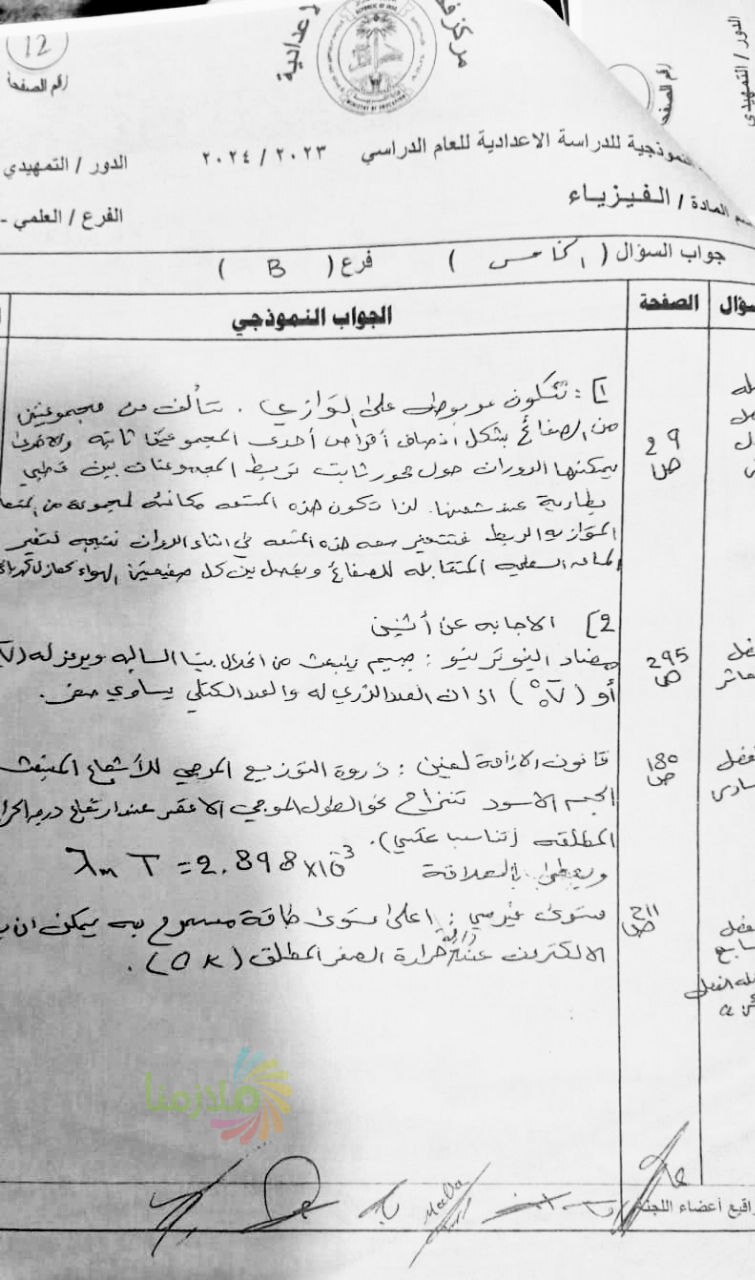 12
رقم الصفحة
مركز
اعدادية
REPUBLIC OF IRAQ
MINISTRY OF EDUCATION
رقم الصفحة
الدور / التمهيدي
النموذجية للدراسة الاعدادية للعام الدراسي ٢٠٢٣ / ٢٠٢٤ الدور / التمهيدي
المادة / الفيزياء الفرع / العلمي -
جواب السؤال ( الخامس ) فرع ( B )
الصفحة الجواب النموذجي
1] : تتكون مربوطة على التوازي . تتألف من مجموعتين
من الصفائح بشكل انصاف أقراص أحدى المجموعتين ثابتة والاخرى
29 ص
يمكنها الدوران حول محور ثابت تربط المجموعتان بين قطبي
بطارية عند شحنها. لذا تكون هذه المتسعة مكافئة لمجموعة من
المتوازية الربط فتتغير سعة هذه المتسعة في اثناء الدوران نتيجة لتغير
المساحة السطحية المتقابلة للصفائح ويفصل بين كل صفيحتين الهواء كعازل
2] الاجابة عن أثنين
مضاد النيوترينو : جسيم ينبعث من انحلال بيتا السالبة ويرمز له
295 ص
أو ( ) اذ ان العدد الذري له والعدد الكتلي يساوي صفر.
قانون الازاحة لفين : ذروة التوزيع الموجي للأشعاع المنبعث
180 ص
الجسم الاسود تنزاح نحو الطول الموجي الاقصر عند ارتفاع درجة
المطلقة (تناسب عكسي).
ويعطى بالعلاقة λm T = 2.898 x 10⁻³
مستوى فيرمي : اعلى مستوى طاقة مسموح به يمكن ان
211 ص
الالكترون عند درجة حرارة الصفر المطلق (0K).
ملازمنا
أعضاء اللجنة